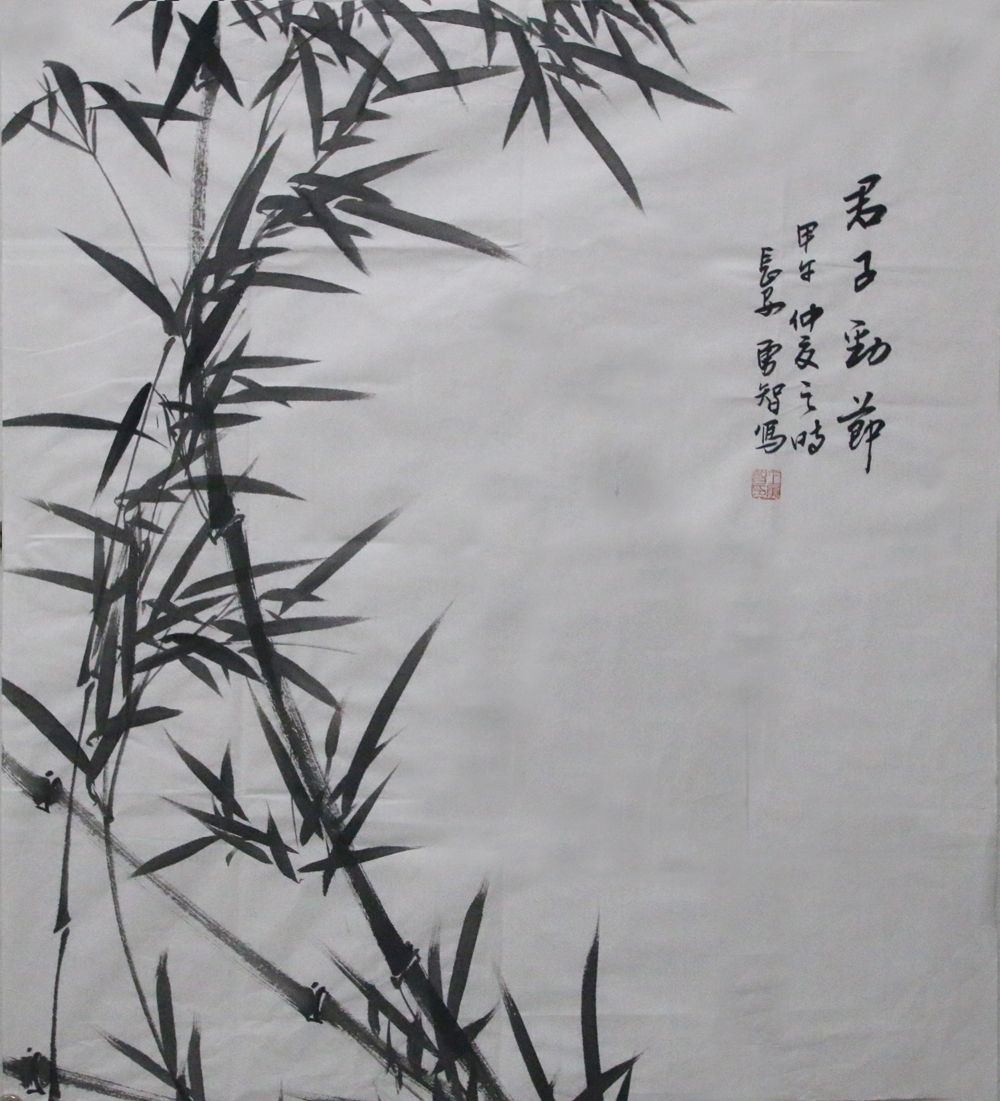 君子勁節
甲午仲夏之時
長安勇智寫